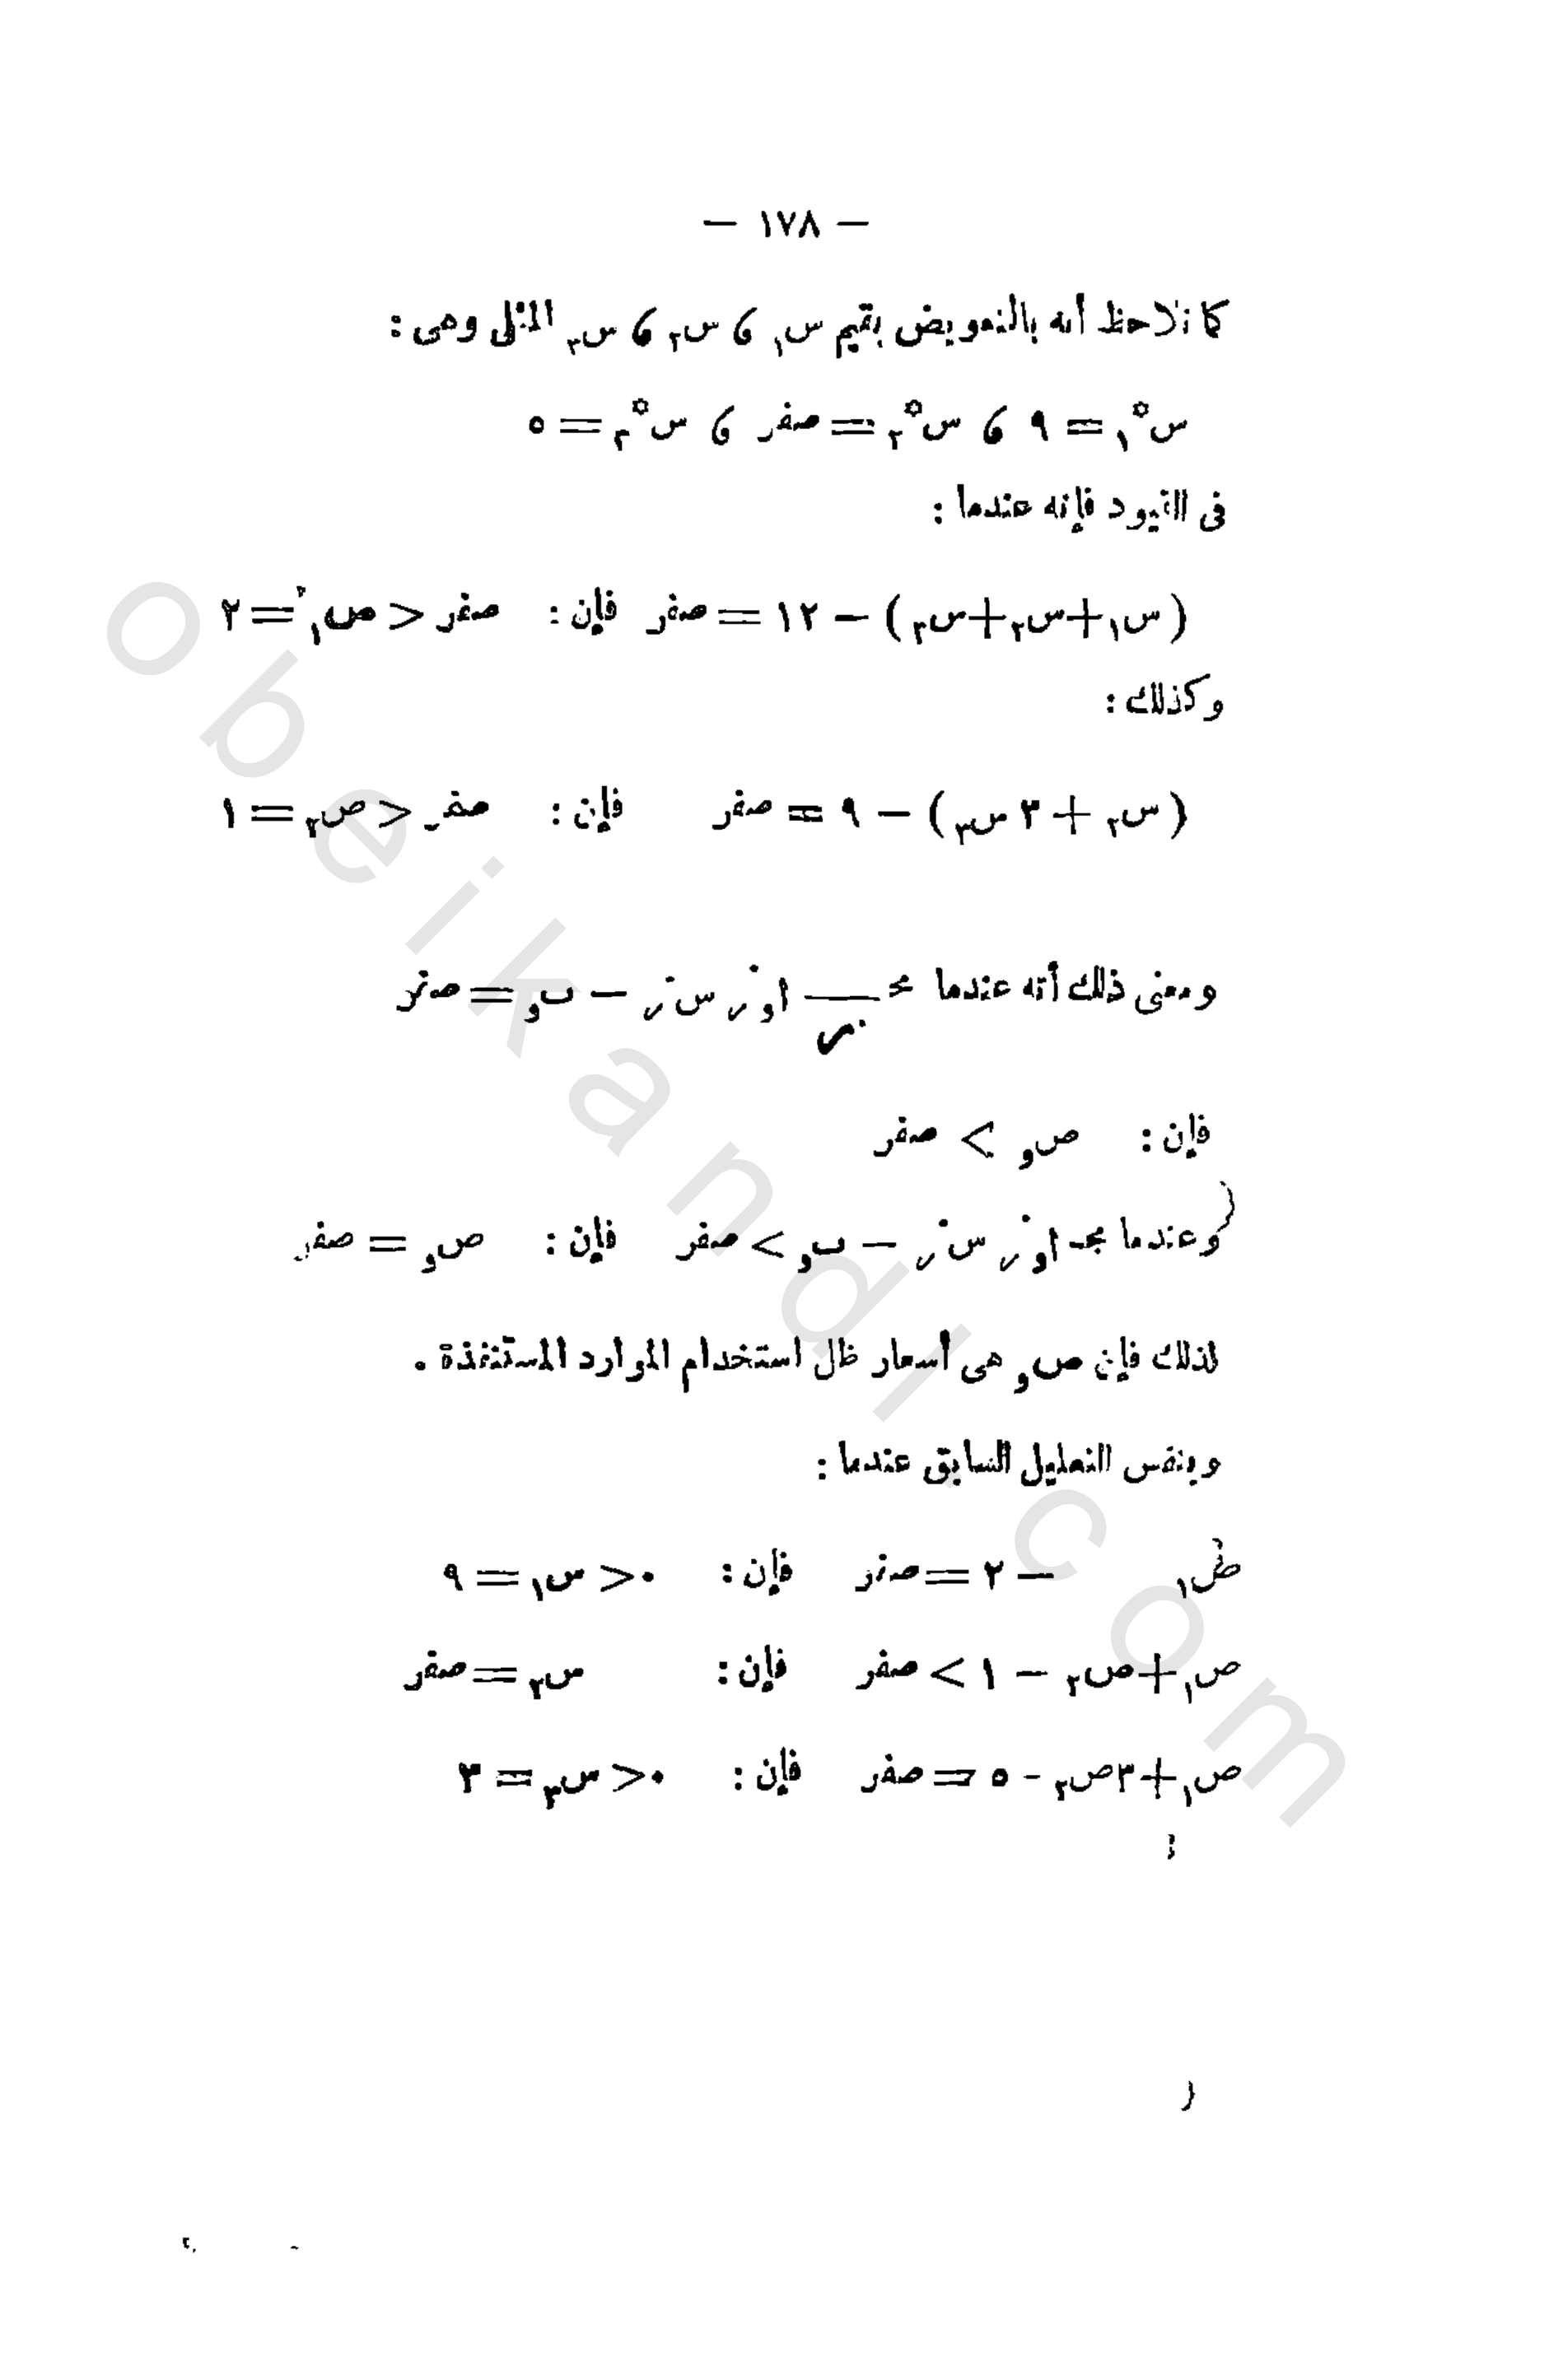 — ١٧٨ —
كما نلاحظ أنه بالتعويض بقيم س₁ ، س₂ ، س₃ المثلى وهى :
س*₁ = ٩ ، س*₂ = صفر ، س*₃ = ٥
فى القيود فإنه عندما :
( س₁+س₂+س₃ ) – ١٢ = صفر فإن : صفر < ص₁ = ٢
وكذلك :
( س₂ + ٣ س₃ ) – ٩ = صفر فإن : صفر < ص₂ = ١
ومعنى ذلك أنه عندما مجـ ا و ز س ز – ب و = صفر
ز
فإن : ص و > صفر
وعندما مجـ ا و ز س ز – ب و < صفر فإن : ص و = صفر
لذلك فإن ص و هى أسعار ظل استخدام الموارد المستنفذة .
وبنفس التعليل السابق عندما :
ص₁ – ٢ = صفر فإن : ٠ < س₁ = ٩
ص₁+ص₂ – ١ > صفر فإن : س₂ = صفر
ص₁+٣ص₂ - ٥ = صفر فإن : ٠ < س₃ = ٣
obeikandl.com